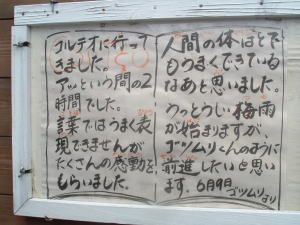 コルテオに行って
きました。
アッという間の2
時間でした。
言葉ではうまく表
現できませんが
たくさんの感動を
もらいました。
人間の体はとて
もうまくできている
なあと思いました。
うっとうしい梅雨
が始まりますが
ゴツムリくんのように
前進したいと思い
ます。6月9日
ゴツムリより